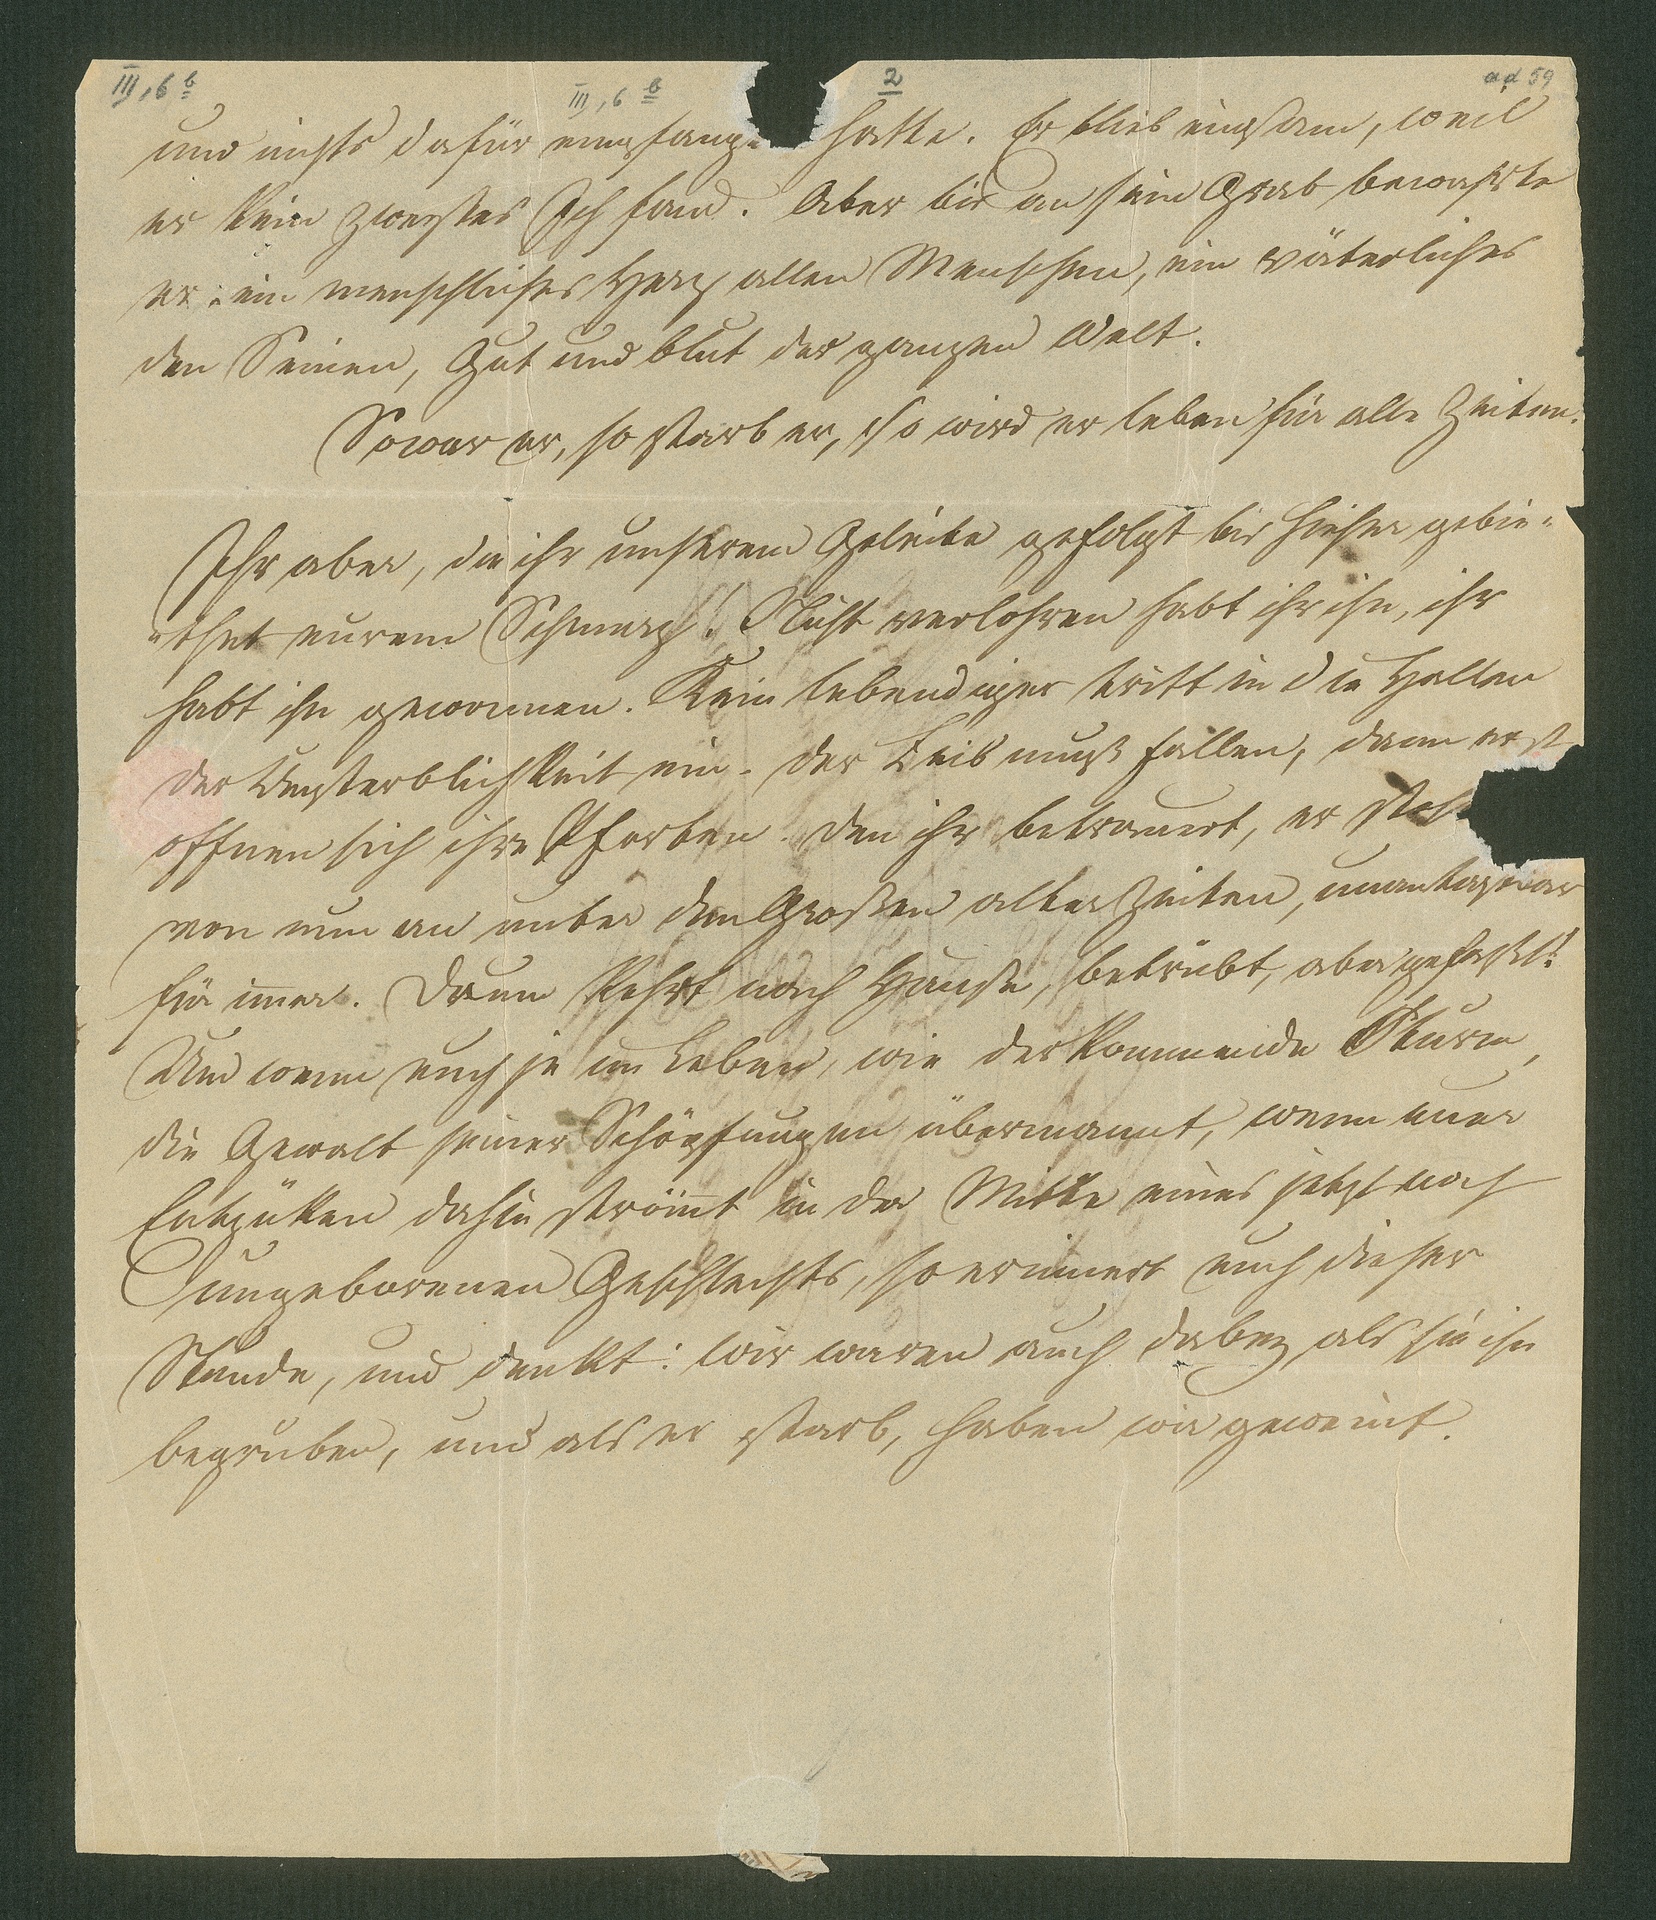 III, 6 b
III, 6 b
2
ad 59
und nichts dafür empfange hatte. Er blieb einsam, weil
er kein zweytes Ich fand. Aber bis an sein Grab bewahrte
er ein menschliches Herz allen Menschen, ein väterliches
den Seinen, Gut und Blut der ganzen Welt.
So war er, so starb er, so wird er leben für alle Zeiten.
Ihr aber, die ihr unserem Geleite gefolgt bis hieher gebie-
-thet eurem Schmerz! Nicht verlohren habt ihr ihn, ihr
habt ihn gewonnen. Kein lebendiger tritt in die Hallen
der Unsterblichkeit ein. Der Leib muß fallen, dann erst
öffnen sich ihre Pforten. Den ihr betrauert, er steh
von nun an unter den Großen aller Zeiten, unantastbar
für immer. Drum kehrt nach Hause, betrübt, aber gefaßt!
Und wenn euch je im Leben, wie der kommende Sturm,
die Gewalt seiner Schöpfungen übermannt, wenn euer
Entzüken dahin strömt in der Mitte eines jetzt noch
ungeborenen Geschlechts, so erinnert euch dieser
Stunde, und denkt: wir waren auch dabey als sie ihn
begruben, und als er starb, haben wir geweint.